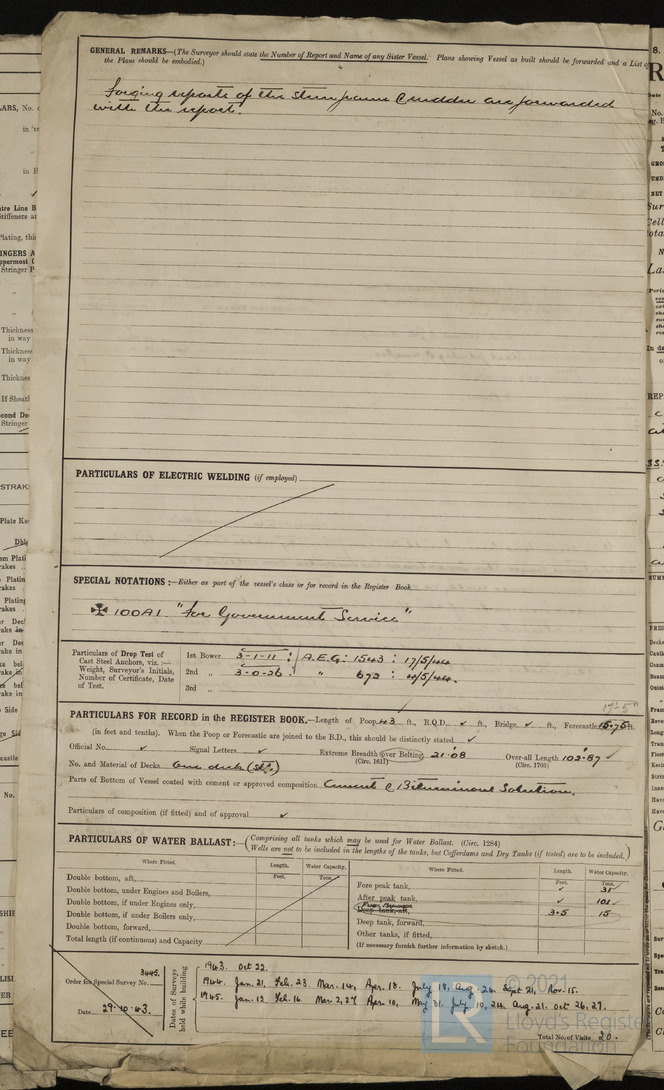 GENERAL REMARKS—(The Surveyor should state the Number of Report and Name of any Sister Vessel. Plans showing Vessel as built should be forwarded and a List of
the Plans should be embodied.)
Forging reports of the Stern frame & rudder are forwarded
with the report.
PARTICULARS OF ELECTRIC WELDING (if employed)
SPECIAL NOTATIONS:—Either as part of the vessel's class or for record in the Register Book.
✠ 100A1 "For Government Service"
Particulars of Drop Test of
Cast Steel Anchors, viz.:—
Weight, Surveyor's Initials,
Number of Certificate, Date
of Test.
1st Bower 3-1-11 : A.E.G: 1543 : 17/5/44
2nd „ 3-0-26 : " 672 : 4/5/44.
3rd „
17'-5"
PARTICULARS FOR RECORD in the REGISTER BOOK.—Length of Poop 43 ft., R.Q.D. ✓ ft., Bridge ✓ ft., Forecastle 15.75 ft.
(in feet and tenths). When the Poop or Forecastle are joined to the B.D., this should be distinctly stated ✓
Official No. ✓ Signal Letters ✓ Extreme Breadth over Belting 21.08 Over-all Length 102.87 ✓
(Circ. 1611) (Circ. 1703)
No. and Material of Decks One deck (Stl.)
Parts of Bottom of Vessel coated with cement or approved composition Cement & Bituminous Solution.
Particulars of composition (if fitted) and of approval ✓
PARTICULARS OF WATER BALLAST:— (Comprising all tanks which may be used for Water Ballast. (Circ. 1284)
Wells are not to be included in the lengths of the tanks, but Cofferdams and Dry Tanks (if tested) are to be included.)
Where Fitted. Length. Water Capacity. Where Fitted. Length. Water Capacity.
Feet. Tons. Feet. Tons.
Double bottom, aft,
Double bottom, under Engines and Boilers,
Double bottom, if under Engines only,
Double bottom, if under Boilers only,
Double bottom, forward,
Total length (if continuous) and Capacity
Fore peak tank, ✓ 31
After peak tank, ✓ 101
Deep tank, aft, 3.5 15
Deep tank, forward,
Other tanks, if fitted,
(If necessary furnish further information by sketch.)
Order for Special Survey No. 3445.
Date 29.10.43.
Dates of Surveys
held while building
1943. Oct 22.
1944. Jan. 21, Feb. 23. Mar. 14, Apr. 18. July 18, Aug. 24. Sept 21, Nov. 15.
1945. Jan. 12 Feb. 16. Mar 2, 27 Apr. 10, May 31. July 10, 24. Aug. 21. Oct 26, 27.
Total No. of Visits 20.
© 2021
Lloyd's Register
Foundation